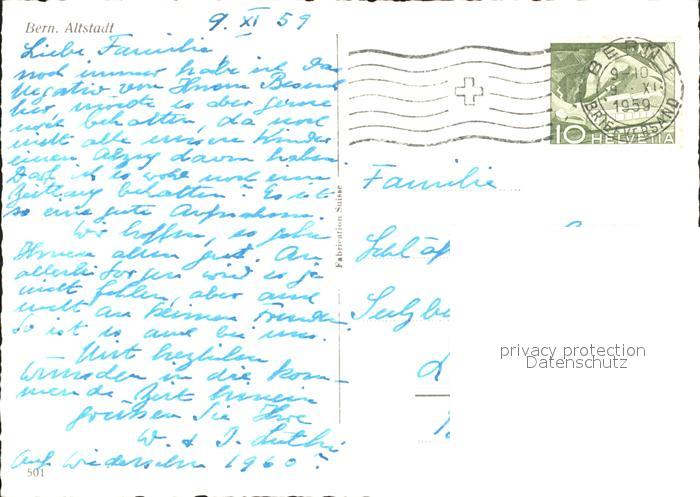 Bern. Altstadt
9. XI 59
Liebe Familie
noch immer habe ich das
Negativ von Ihrem Besuch
hier, möchte es aber gerne
noch behalten, da noch
nicht alle unsere Kinder
einen Abzug davon haben.
Darf ich es wohl noch eine
Zeitlang behalten? Es ist
so eine gute Aufnahme.
Wir hoffen, es gehe
Ihnen allen gut. An
allerlei Sorgen wird es ja
nicht fehlen, aber auch
nicht an kleinen Freuden.
So ist es auch bei uns.
Mit herzlichen
Wünschen in die kom-
mende Zeit hinein
grüssen Sie Ihre
W. & J. Lüthi
Auf Wiedersehn 1960?
501
Fabrication Suisse
BERN 1
9-10
XI.
1959
BRIEFVERSAND
10 HELVETIA
Familie
privacy protection
Datenschutz